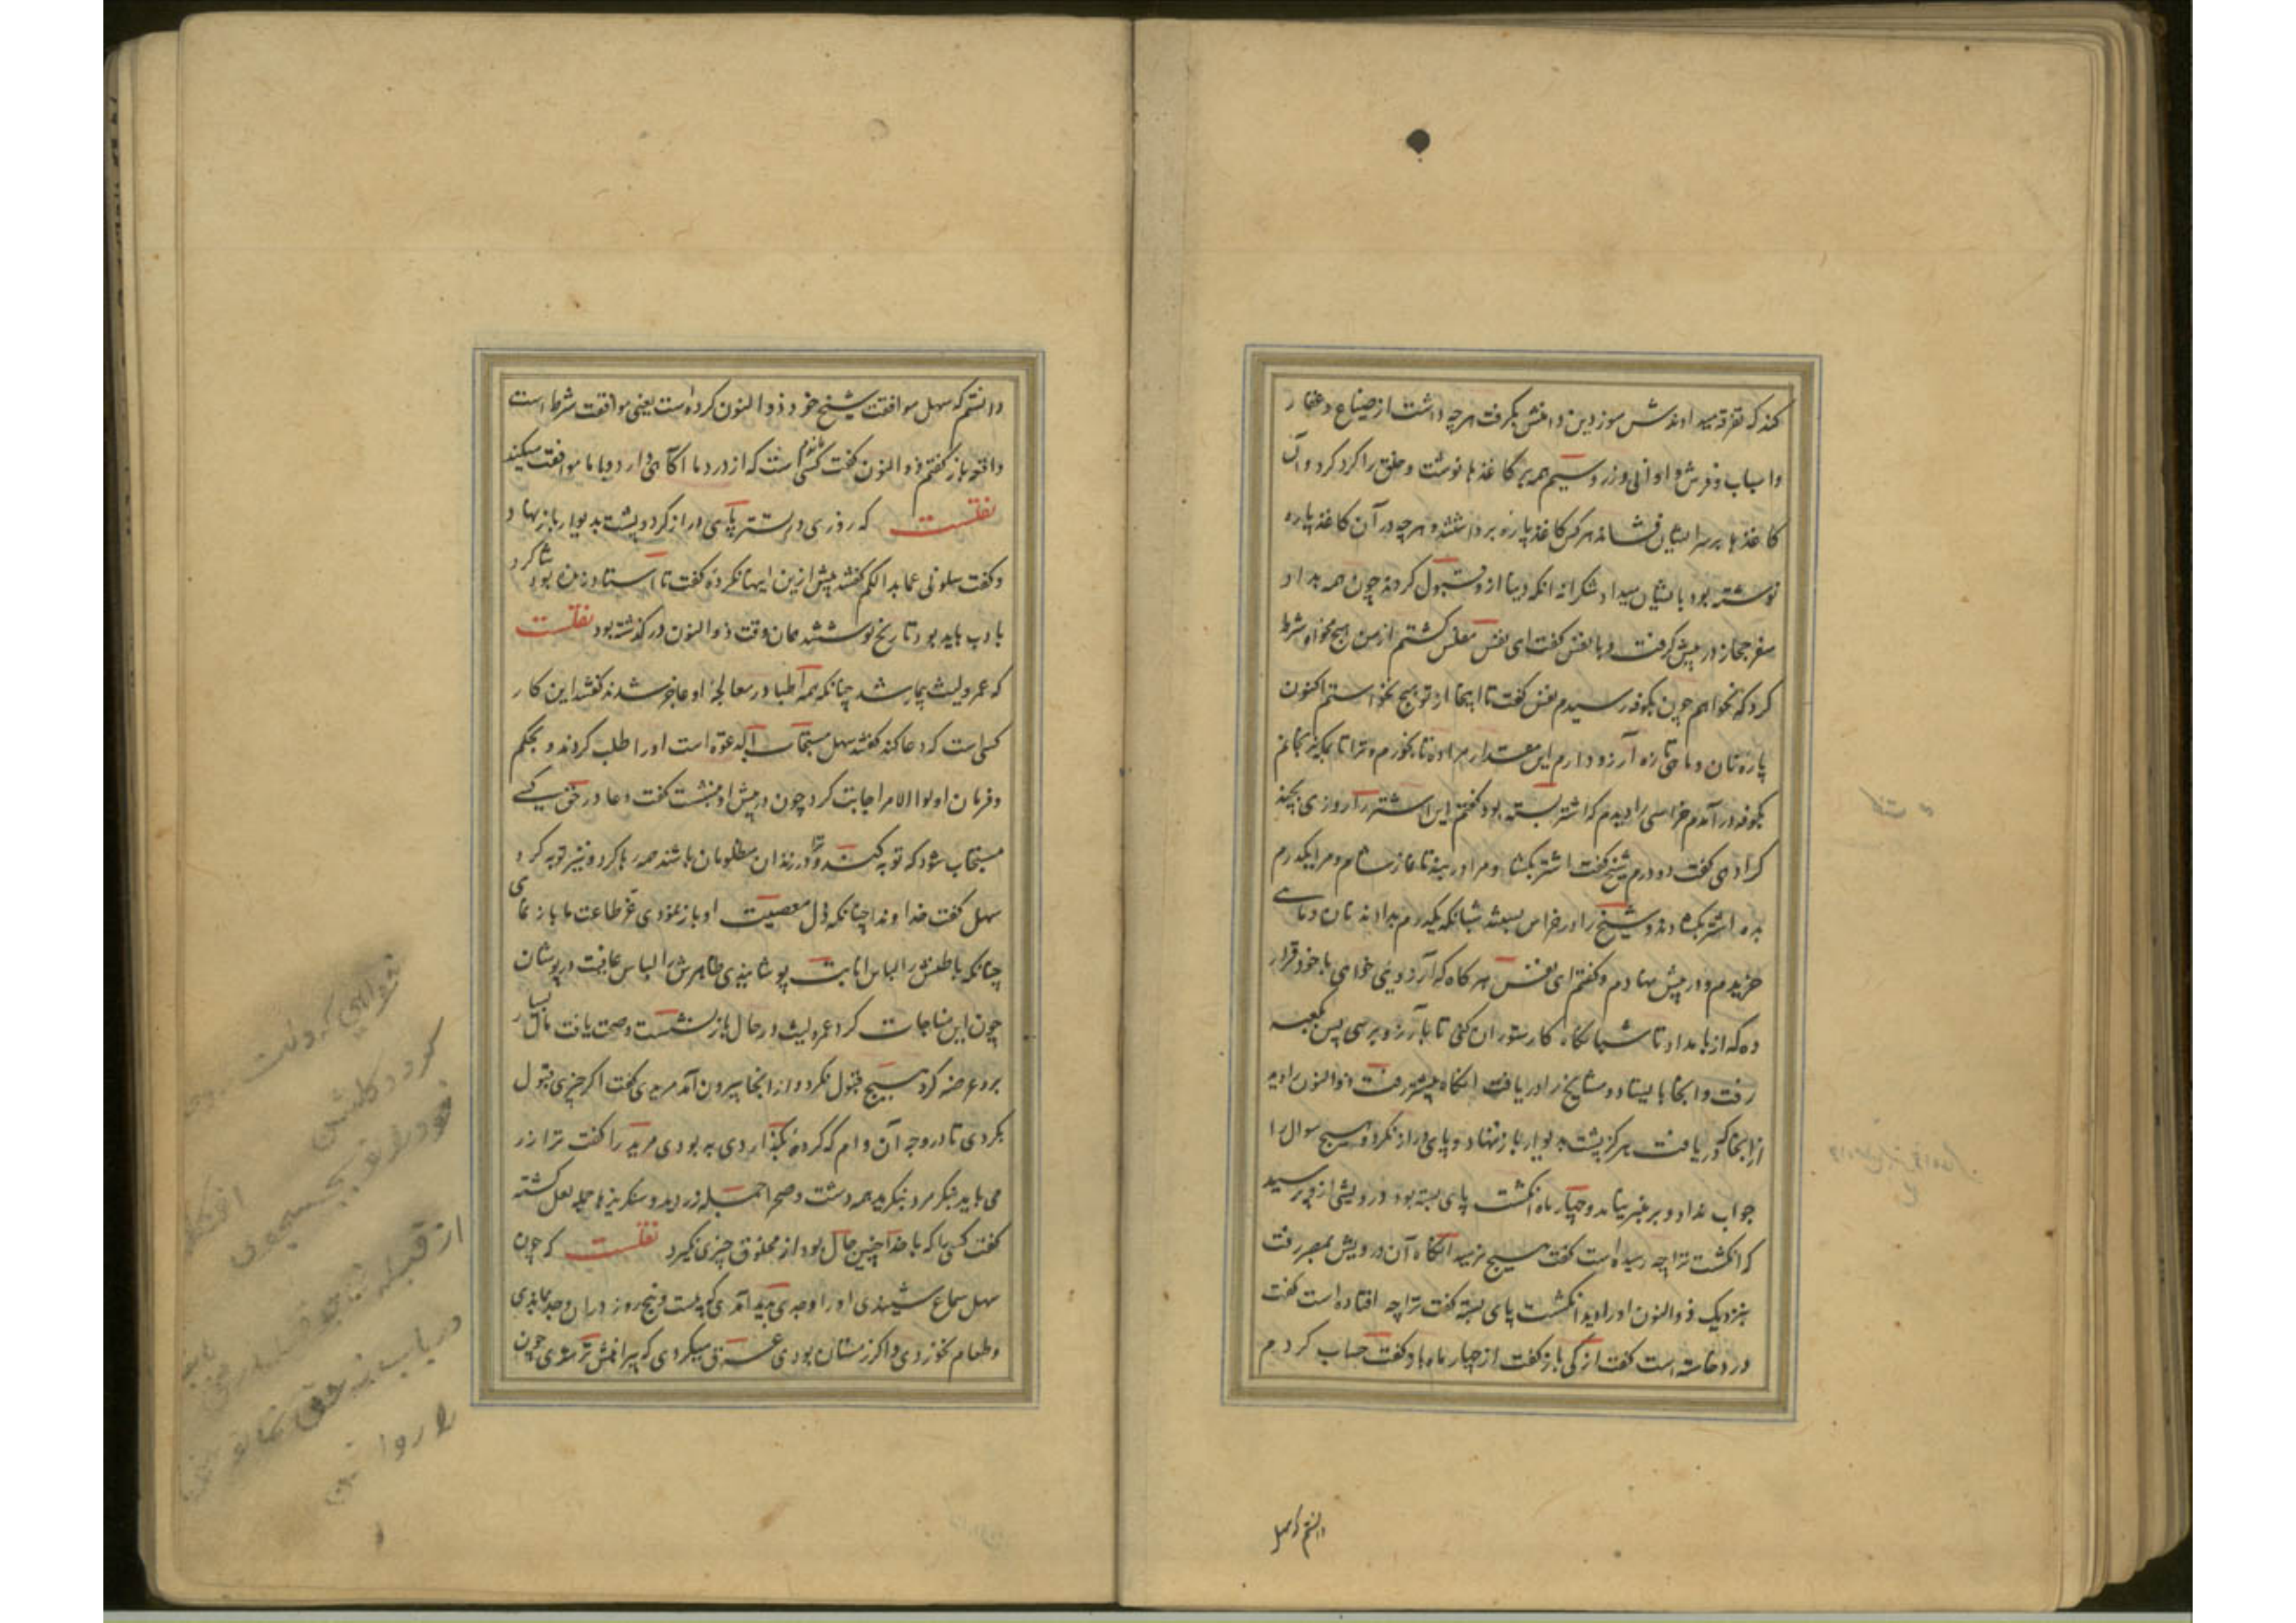 کند که تفرقه میداوندش سوز دین دامنش بگرفت هرچه داشت از ضیاع و عقار
و اسباب و فرش و اوانی و زر و سیم همه بر کاغذها نوشت و خلق را گرد کرد و آن
کاغذها بر سر ایشان فشاند هر کس کاغذ پاره برداشتند و هرچه در آن کاغذ پاره
نوشته بود بایشان میداد شکرانه آنکه دنیا ازو قبول کردند چون همه بداد
سفر حجاز در پیش گرفت و با نفس گفت ای نفس مفلس گشتم از من هیچ مخواه شرط
کرد که نخواهم چون بکوفه رسیدم نفس گفت تا اینجا از تو هیچ نخواستم اکنون
پاره نان و ماهی تازه آرزو دارم این مقدار مرا ده تا بخورم و ترا تا بمکه نرنجانم
بکوفه در آمدم خراسی را دیدم که اشتر بسته بود گفتم این اشتر را روزی بچند
کرا دهی گفت دو درم شیخ گفت اشتر بگشا و مرا در بند تا نماز شام و مرا یکدرم
بده اشتر بگشادند و شیخ را در خراس بستند شبانگه یکدرم بدادند نان و ماهی
خریدم و در پیش نهادم و گفتم ای نفس هر گاه که آرزویی خواهی با خود قرار
ده که از بامداد تا شبانگاه کار ستوران کنی تا بآرزو برسی پس بکعبه
رفت و آنجا بایستاد و مشایخ را دریافت آنگاه بتستر رفت ذوالنون را دیه
از آنجا که دریافت هرگز پشت بدیوار باز ننهاد و پای دراز نکرد و هیچ سوال را
جواب نداد و بر منبر نیامد و چهار ماه انگشت پای بسته بود درویشی از وی پرسید
که انگشت ترا چه رسیده است گفت هیچ نرسید آنگاه آن درویش بمصر رفت
بنزدیک ذوالنون او را دید انگشت پای بسته گفت ترا چه افتاده است گفت
درد خاسته است گفت از کی باز گفت از چهار ماه باز گفت حساب کردم
دانستم که سهل
دانستم که سهل موافقت شیخ خود ذوالنون کرده است یعنی موافقت شرط است
و اقعه باز گفتم ذوالنون گفت کسی است که از درد ما آگاهی دارد و با ما موافقت میکند
نقلست که روزی در تستر پای دراز کرد و پشت بدیوار باز نهاد
و گفت سلونی عما بدا لکم گفتند پیش ازین اینها نکرده گفت تا استاد زنده بود شاگرد
بادب باید بود تاریخ نوشتند همان وقت ذوالنون در گذشته بود نقلست
که عمرو لیث بیمار شد چنانکه همه اطبا در معالجه او عاجز شدند گفتند این کار
کسی است که دعا کند گفتند سهل مستجاب الدعوة است او را طلب کردند و بحکم
و فرمان اولوا الامر اجابت کرد چون در پیش او بنشست گفت دعا در حق کسی
مستجاب شود که توبه کند و ترا در زندان مظلومان باشند همه رها کرد و نیز توبه کرد
سهل گفت خداوندا چنانکه ذل معصیت او باز نمودی عز طاعت ما باز نمای
چنانکه باطنش را لباس انابت پوشانیدی ظاهرش را لباس عافیت در پوشان
چون این مناجات کرد عمرو لیث در حال باز نشست و صحت یافت مال بسیار
برو عرضه کرد هیچ قبول نکرد و از آنجا بیرون آمد مریدی گفت اگر چیزی قبول
بکردی تا در وجه آن وام که کرده بگذاردی به بودی مرید را گفت ترا زر
می باید بنگر مرد بنگرید همه دشت و صحرا جمله زر دید و سنگریزها جمله لعل گشته
گفت کسی را که با خدا چنین حال بود از مخلوق چیزی نگیرد نقلست که چون
سهل سماع شنیدی او را وجدی پدید آمدی که بیست و پنج روز در ان وجد بماندی
و طعام نخوردی و اگر زمستان بودی عرق میکردی که پیراهنش تر شدی چون